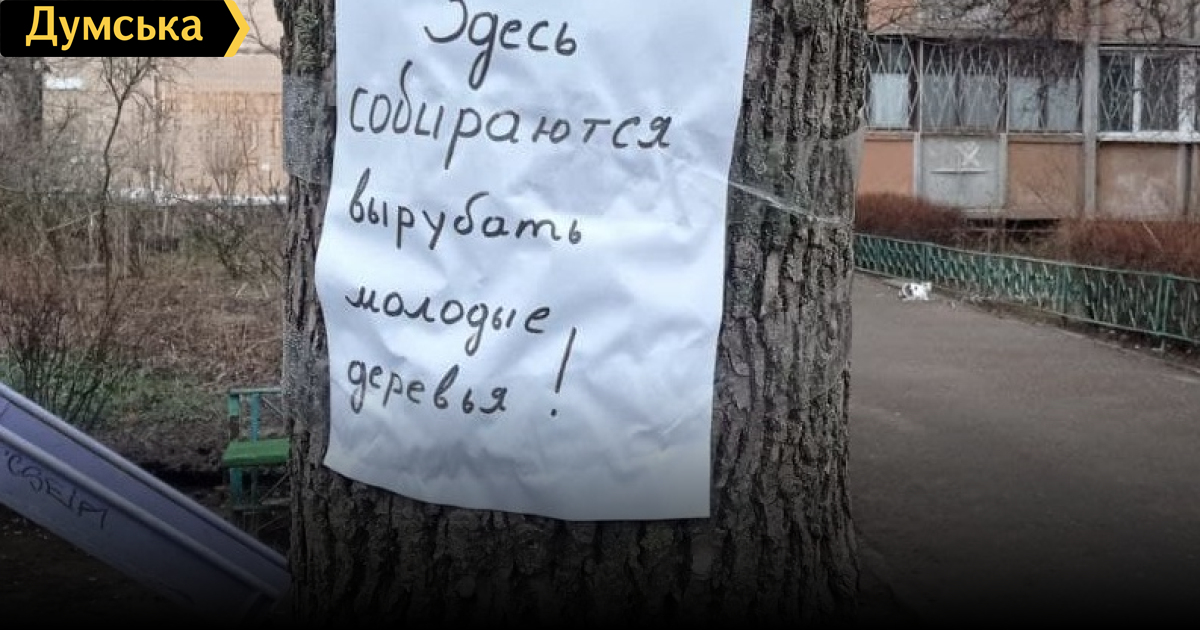 Думська
Здесь
собираются
вырубать
молодые
деревья!